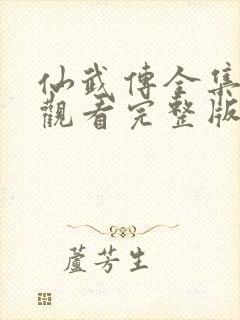 仙武傳全集
觀看完整版
蘆芳生